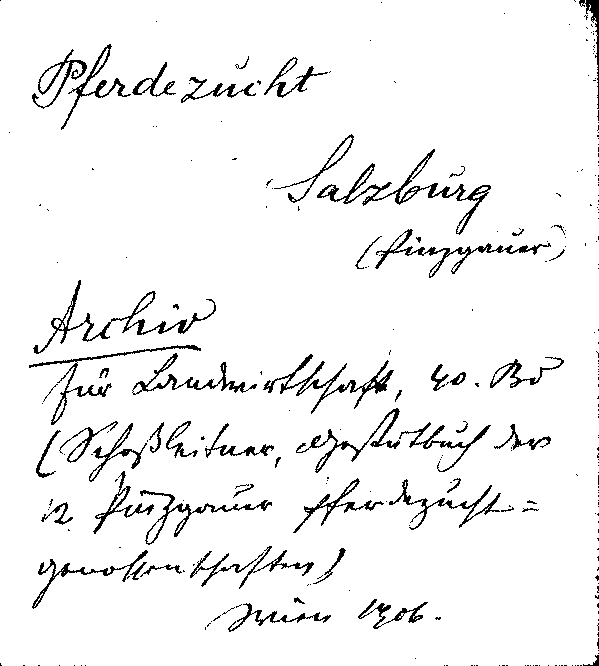 Pferdezucht
Salzburg
(Pinzgauer)
Archiv
für Landwirtschaft, 40. Bd
(Schoßleitner, Gestütbuch der
12 Pinzgauer Pferdezucht=
genossenschaften)
Wien 1906.